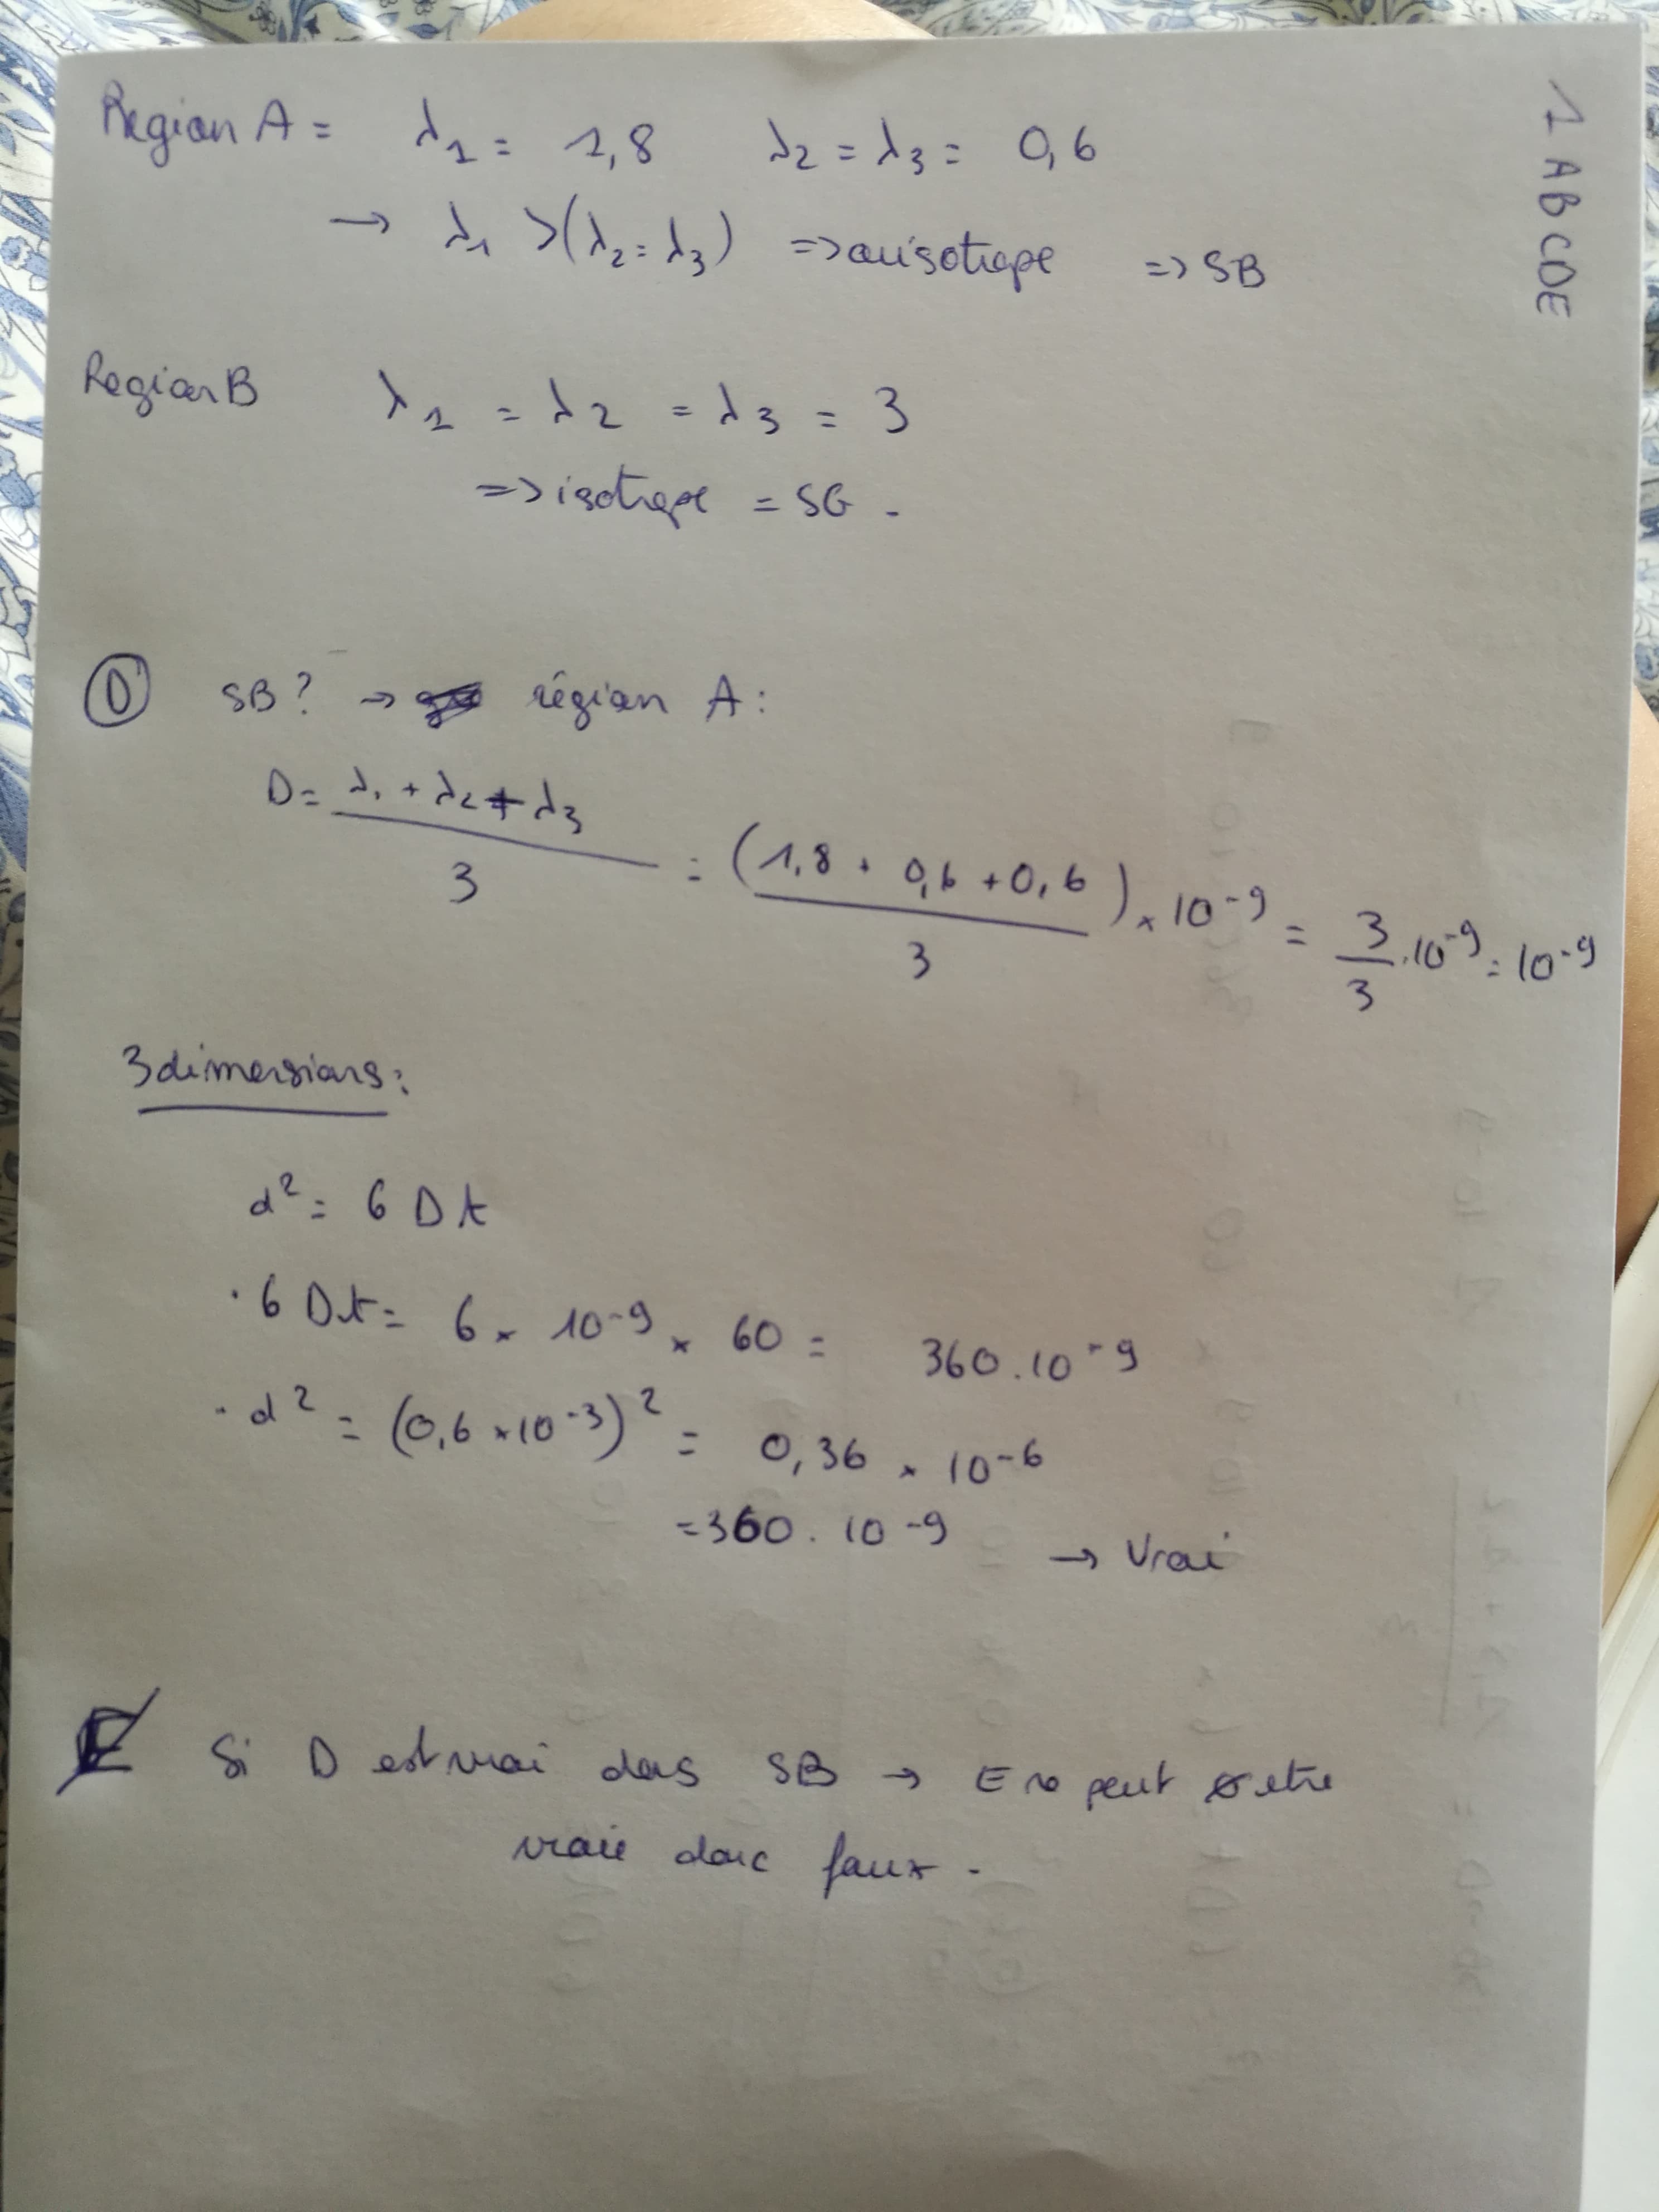 Region A = λ1 = 1,8 λ2 = λ3 = 0,6
→ λ1 > (λ2 = λ3) => anisotrope => SB
1 ABCDE
Region B λ1 = λ2 = λ3 = 3
=> isotrope = SG .
D SB? → région A :
D = (λ1 + λ2 + λ3) / 3 = (1,8 + 0,6 + 0,6) / 3 × 10^-9 = 3/3 . 10^-9 = 10^-9
3 dimensions :
d² = 6 D t
· 6 Dt = 6 × 10^-9 × 60 = 360 . 10^-9
· d² = (0,6 × 10^-3)² = 0,36 × 10^-6
= 360 . 10^-9 → Vrai
E Si D est vrai dans SB → E ne peut etre
vraie donc faux .